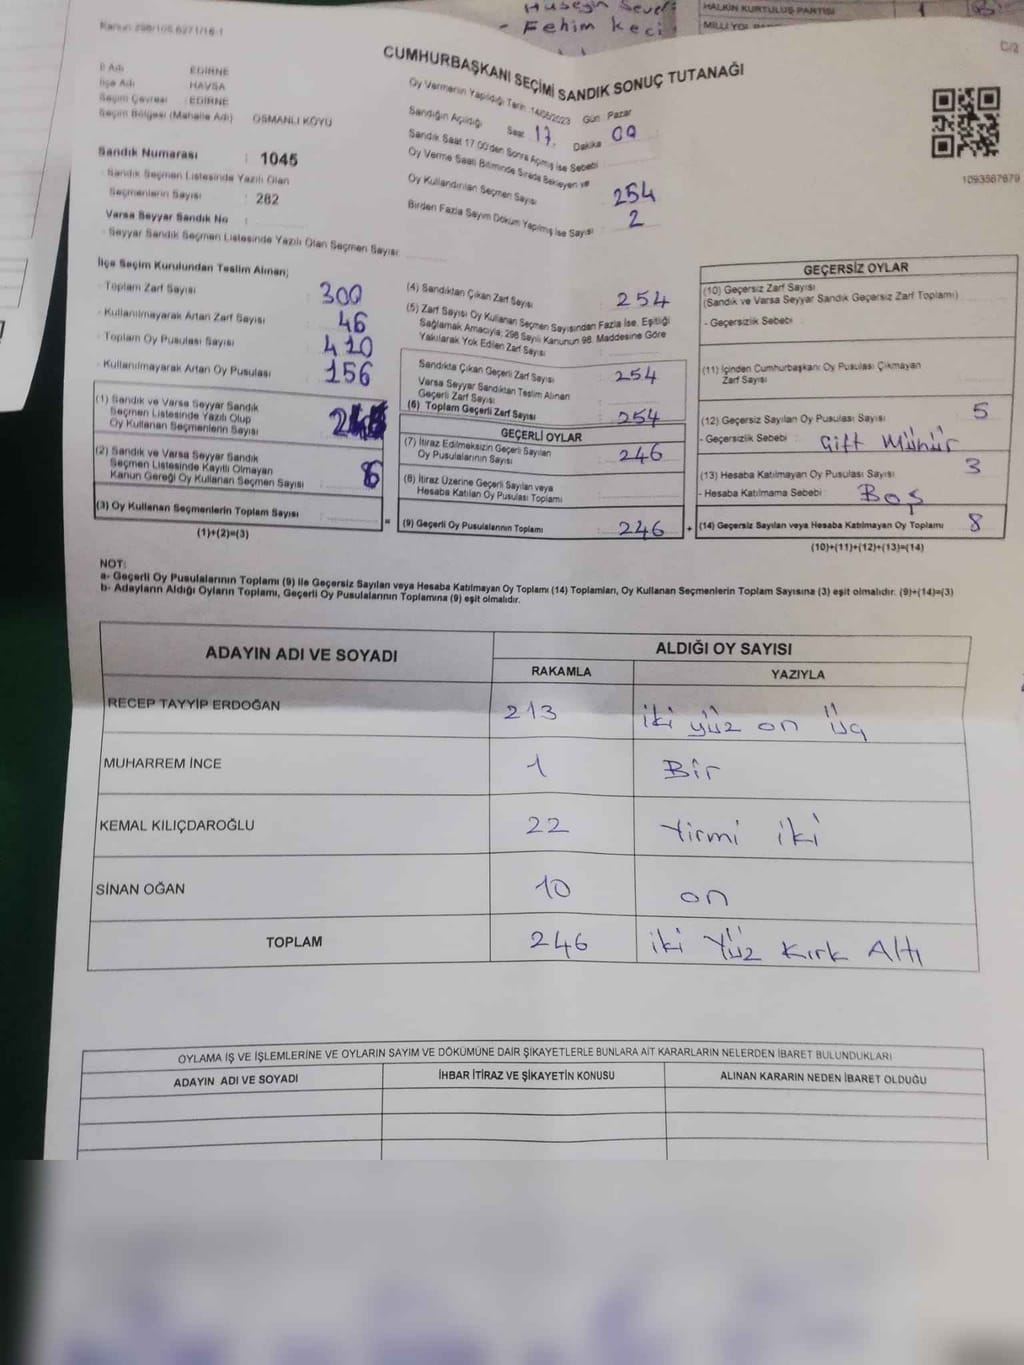 Hüseyin
- Fehim Keci
HALKIN KURTULUŞ PARTİSİ
1
MİLLİ YOL
C/2
CUMHURBAŞKANI SEÇİMİ SANDIK SONUÇ TUTANAĞI
İl Adı : EDİRNE
İlçe Adı : HAVSA
Seçim Çevresi : EDİRNE
Seçim Bölgesi (Mahalle Adı) : OSMANLI KÖYÜ
Sandık Numarası : 1045
- Sandık Seçmen Listesinde Yazılı Olan
Seçmenlerin Sayısı : 282
Varsa Seyyar Sandık No :
- Seyyar Sandık Seçmen Listesinde Yazılı Olan Seçmen Sayısı:
Oy Vermenin Yapıldığı Tarih: 14/05/2023 Gün: Pazar
Sandığın Açıldığı Saat: 17. Dakika 00
Sandık Saat 17.00'den Sonra Açılmış İse Sebebi
Oy Verme Saati Bitiminde Sırada Bekleyen ve
Oy Kullandırılan Seçmen Sayısı 254
Birden Fazla Sayım Döküm Yapılmış İse Sayısı : 2
1093567679
İlçe Seçim Kurulundan Teslim Alınan;
- Toplam Zarf Sayısı : 300
- Kullanılmayarak Artan Zarf Sayısı : 46
- Toplam Oy Pusulası Sayısı : 410
- Kullanılmayarak Artan Oy Pusulası : 156
(1) Sandık ve Varsa Seyyar Sandık
Seçmen Listesinde Yazılı Olup
Oy Kullanan Seçmenlerin Sayısı
(2) Sandık ve Varsa Seyyar Sandık
Seçmen Listesinde Kayıtlı Olmayan
Kanun Gereği Oy Kullanan Seçmen Sayısı :
(3) Oy Kullanan Seçmenlerin Toplam Sayısı :
(1)+(2)=(3)
(4) Sandıktan Çıkan Zarf Sayısı : 254
(5) Zarf Sayısı Oy Kullanan Seçmen Sayısından Fazla İse, Eşitliği
Sağlamak Amacıyla; 298 Sayılı Kanunun 98. Maddesine Göre
Yakılarak Yok Edilen Zarf Sayısı :
Sandıkta Çıkan Geçerli Zarf Sayısı : 254
Varsa Seyyar Sandıktan Teslim Alınan
Geçerli Zarf Sayısı :
(6) Toplam Geçerli Zarf Sayısı : 254
GEÇERLİ OYLAR
(7) İtiraz Edilmeksizin Geçerli Sayılan
Oy Pusulalarının Sayısı : 246
(8) İtiraz Üzerine Geçerli Sayılan veya
Hesaba Katılan Oy Pusulası Toplamı :
= (9) Geçerli Oy Pusulalarının Toplamı : 246
GEÇERSİZ OYLAR
(10) Geçersiz Zarf Sayısı
(Sandık ve Varsa Seyyar Sandık Geçersiz Zarf Toplamı) :
- Geçersizlik Sebebi :
(11) İçinden Cumhurbaşkanı Oy Pusulası Çıkmayan
Zarf Sayısı :
(12) Geçersiz Sayılan Oy Pusulası Sayısı : 5
- Geçersizlik Sebebi : Gift Mühür
(13) Hesaba Katılmayan Oy Pusulası Sayısı : 3
- Hesaba Katılmama Sebebi : Boş
+ (14) Geçersiz Sayılan veya Hesaba Katılmayan Oy Toplamı : 8
(10)+(11)+(12)+(13)=(14)
NOT:
a- Geçerli Oy Pusulalarının Toplamı (9) ile Geçersiz Sayılan veya Hesaba Katılmayan Oy Toplamı (14) Toplamları, Oy Kullanan Seçmenlerin Toplam Sayısına (3) eşit olmalıdır. (9)+(14)=(3)
b- Adayların Aldığı Oyların Toplamı, Geçerli Oy Pusulalarının Toplamına (9) eşit olmalıdır.
ADAYIN ADI VE SOYADI ALDIĞI OY SAYISI
RAKAMLA YAZIYLA
RECEP TAYYİP ERDOĞAN 213 iki yüz on üç
MUHARREM İNCE 1 Bir
KEMAL KILIÇDAROĞLU 22 Yirmi iki
SİNAN OĞAN 10 on
TOPLAM 246 iki Yüz Kırk Altı
OYLAMA İŞ VE İŞLEMLERİNE VE OYLARIN SAYIM VE DÖKÜMÜNE DAİR ŞİKAYETLERLE BUNLARA AİT KARARLARIN NELERDEN İBARET BULUNDUKLARI
ADAYIN ADI VE SOYADI İHBAR İTİRAZ VE ŞİKAYETİN KONUSU ALINAN KARARIN NEDEN İBARET OLDUĞU